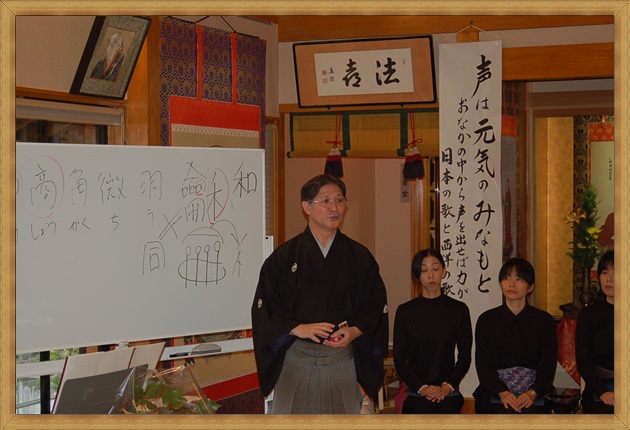 法喜
声は元気のみなもと
おなかの中から声を出せば力が
日本の歌と西洋の歌
商 角 徴 羽 龠禾 和
しょう かく ち う
同